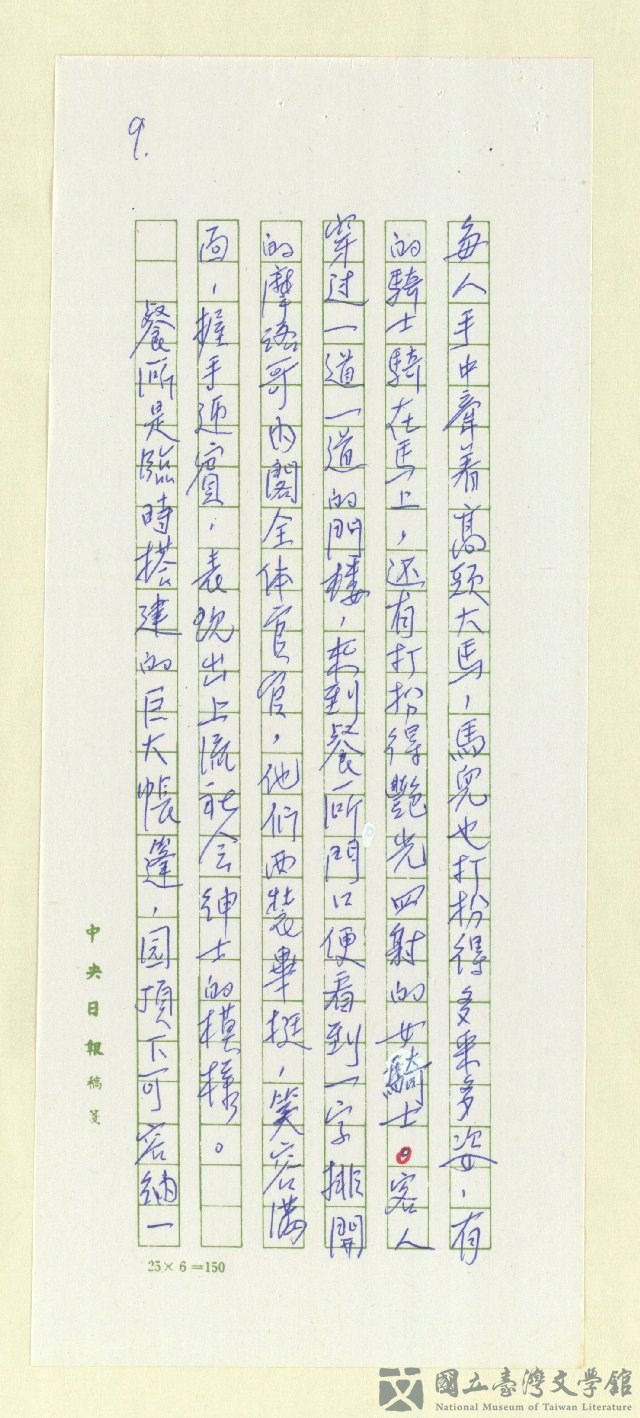 9.
每人手中牽着高頭大馬,馬兒也打扮得多采多姿,有
的騎士騎在馬上,还有打扮得艷光四射的女騎士。客人
穿过一道一道的門樓,来到餐所門口便看到一字排開
的摩洛哥內閣全体官官,他們西裝畢挺,笑容滿
面,握手迎賓,表現出上流社会紳士的模樣。
餐所是臨時搭建的巨大帳篷,园頂下可容納一
中央日報稿箋
25×6=150
國立臺灣文學館
National Museum of Taiwan Literature